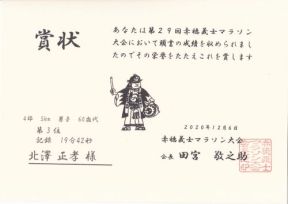 賞状
あなたは第29回赤穂義士マラソン
大会において頭書の成績を収められまし
たのでその栄誉をたたえこれを賞します
4部 5km 男子 60歳代
第3位
記録 19分42秒
北澤 正孝 様
2020年12月6日
赤穂義士マラソン大会
会長 田宮 敬之助